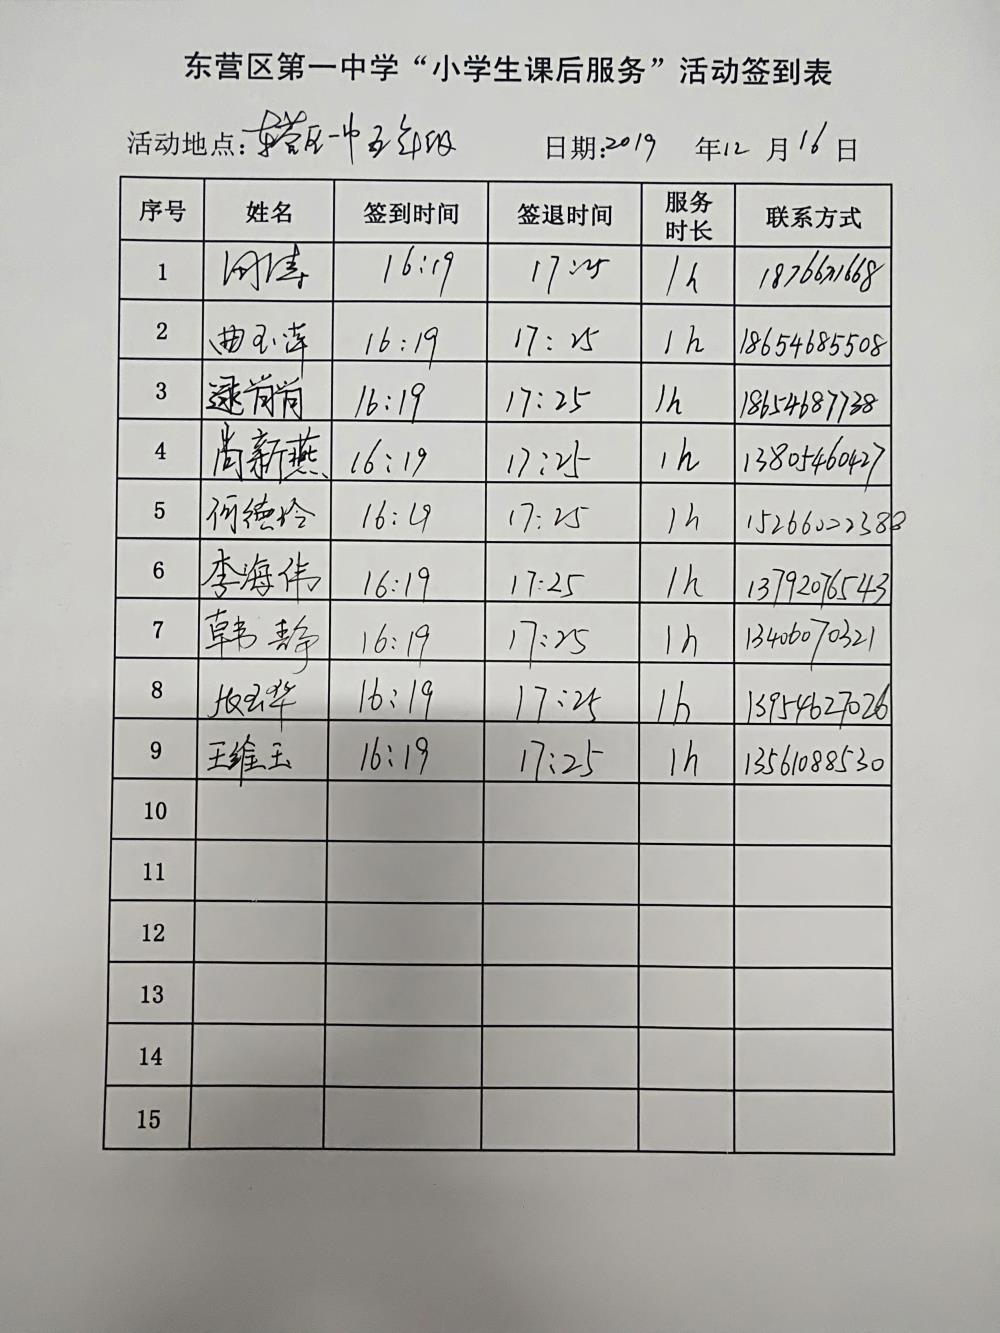 东营区第一中学“小学生课后服务”活动签到表
活动地点：东营区一中五年级 日期：2019 年12 月16日
序号 姓名 签到时间 签退时间 服务时长 联系方式
1 16:19 17:25 1h
2 曲玉萍 16:19 17:25 1h 18654685508
3 逯尚尚 16:19 17:25 1h 18654687738
4 尚新燕 16:19 17:25 1h 13805460427
5 何德玲 16:19 17:25 1h 15266022388
6 李海伟 16:19 17:25 1h 13792076543
7 韩静 16:19 17:25 1h 13406070321
8 16:19 17:25 1h 13954627026
9 王维玉 16:19 17:25 1h 13561088530
10
11
12
13
14
15